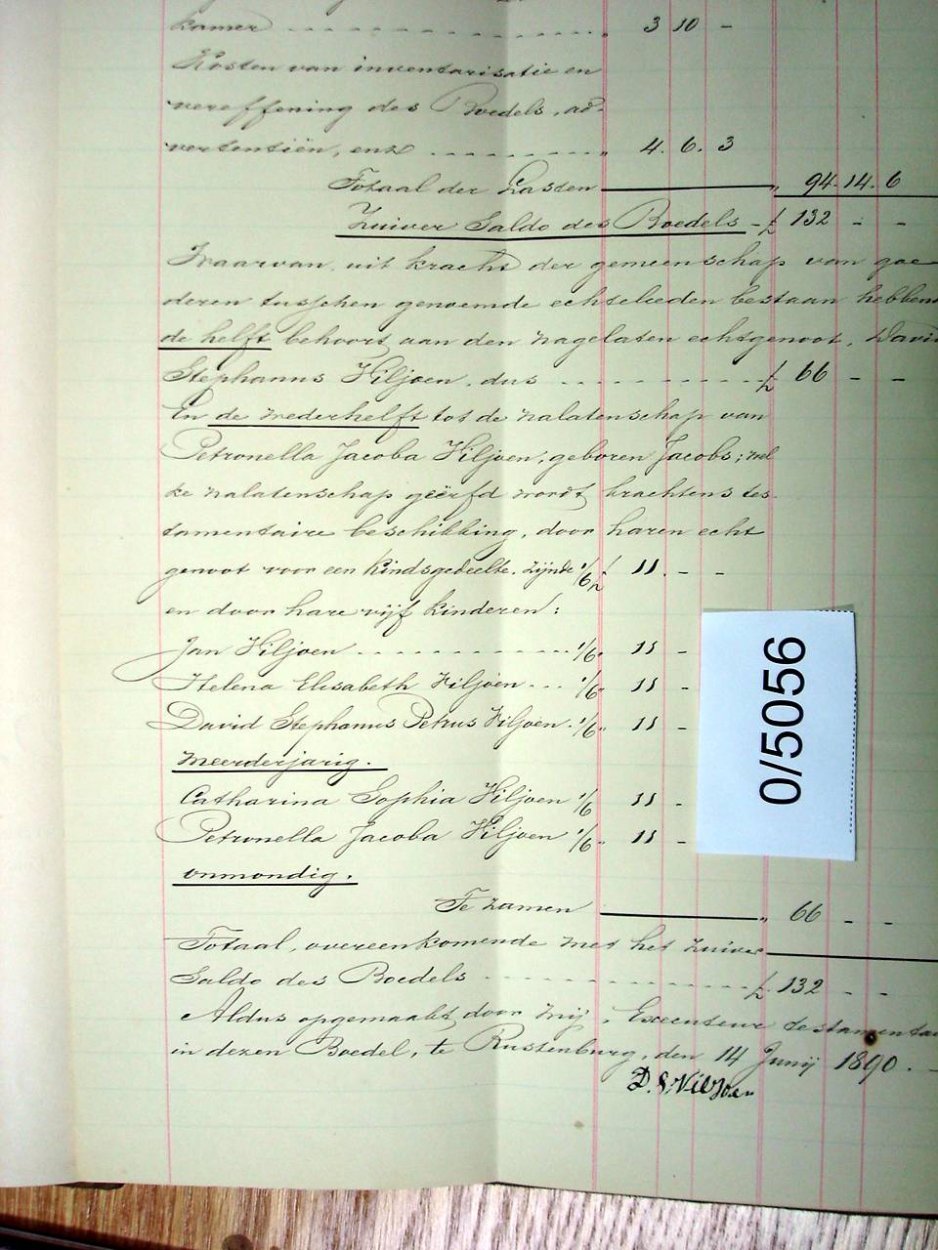 kamer - - - - - - - - - - - - - - - „ 3 10 -
Kosten van inventarisatie en
vereffening des Boedels, ad-
vertentiën, enz - - - - - - - - - „ 4. 6. 3
Totaal der Lasten „ 94. 14. 6
Zuiver Saldo des Boedels - £ 132 - -
Waarvan, uit kracht der gemeenschap van goe
deren tusschen genoemde echtelieden bestaan hebben
de helft behoort aan den nagelaten echtgenoot, David
Stephanus Viljoen, dus - - - - - - - - - £ 66 - -
En de wederhelft tot de nalatenschap van
Petronella Jacoba Viljoen, geboren Jacobs; wel
ke nalatenschap geërfd wordt krachtens tes-
tamentaire beschikking, door haren echt
genoot voor een kindsgedeelte, zijnde 1/6 £ 11. - -
en door hare vijf kinderen:
Jan Viljoen - - - - - - - - - - - - 1/6 „ 11 -
Helena Elisabeth Viljoen - - - 1/6 „ 11 -
David Stephanus Petrus Viljoen - 1/6 „ 11 -
meerderjarig.
Catharina Sophia Viljoen 1/6 „ 11 -
Petronella Jacoba Viljoen 1/6 „ 11 -
onmondig.
Te zamen „ 66 - -
Totaal, overeenkomende met het zuiver
Saldo des Boedels - - - - - - - - - £ 132 - -
Aldus opgemaakt door mij, Executeur testamentair
in dezen Boedel, te Rustenburg, den 14 Junij 1890. -
D. S. Viljoen
0/5056